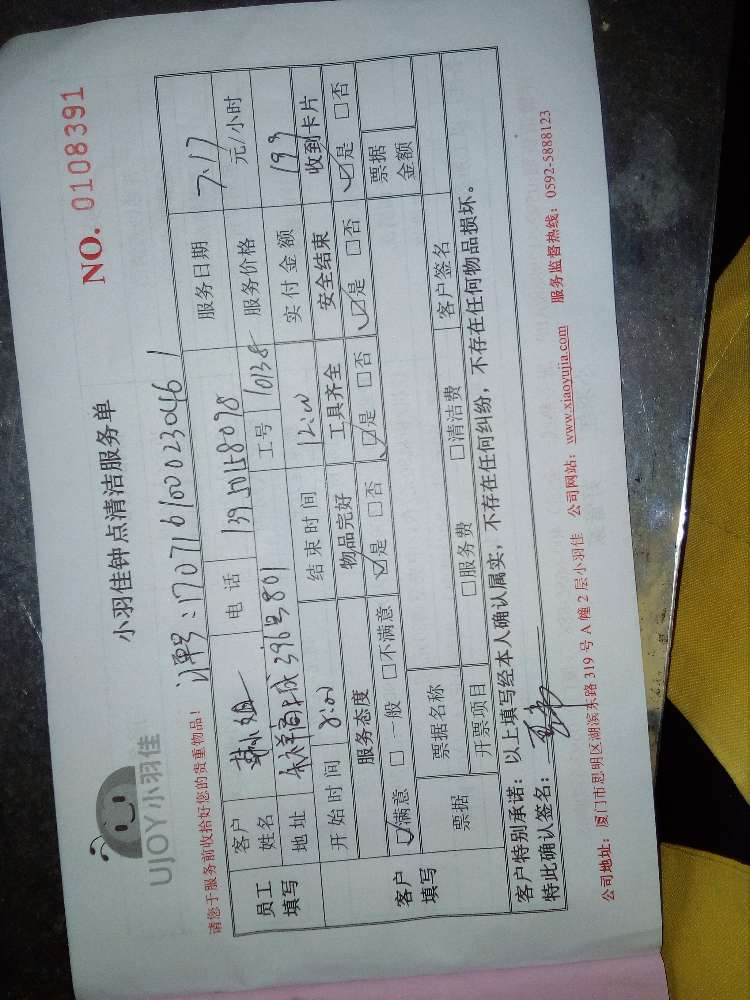 UJOY小羽佳
小羽佳钟点清洁服务单
NO. 0108391
请您于服务前收拾好您的贵重物品！
订单号：1707161000230461
员工填写 客户姓名 小姐 电话 服务日期 7.17
地址 396号801 工号 10138 服务价格 元/小时
开始时间 8:00 结束时间 12:00 实付金额 199
客户填写 服务态度 物品完好 工具齐全 安全结束 收到卡片
☑满意 □一般 □不满意 ☑是 □否 ☑是 □否 ☑是 □否 ☑是 □否
票据 票据名称 客户签名 票据金额
开票项目 □服务费 □清洁费
客户特别承诺：以上填写经本人确认属实，不存在任何纠纷，不存在任何物品损坏。
特此确认签名：
公司地址：厦门市思明区湖滨东路319号A幢2层小羽佳 公司网站：www.xiaoyujia.com 服务监督热线：0592-5888123